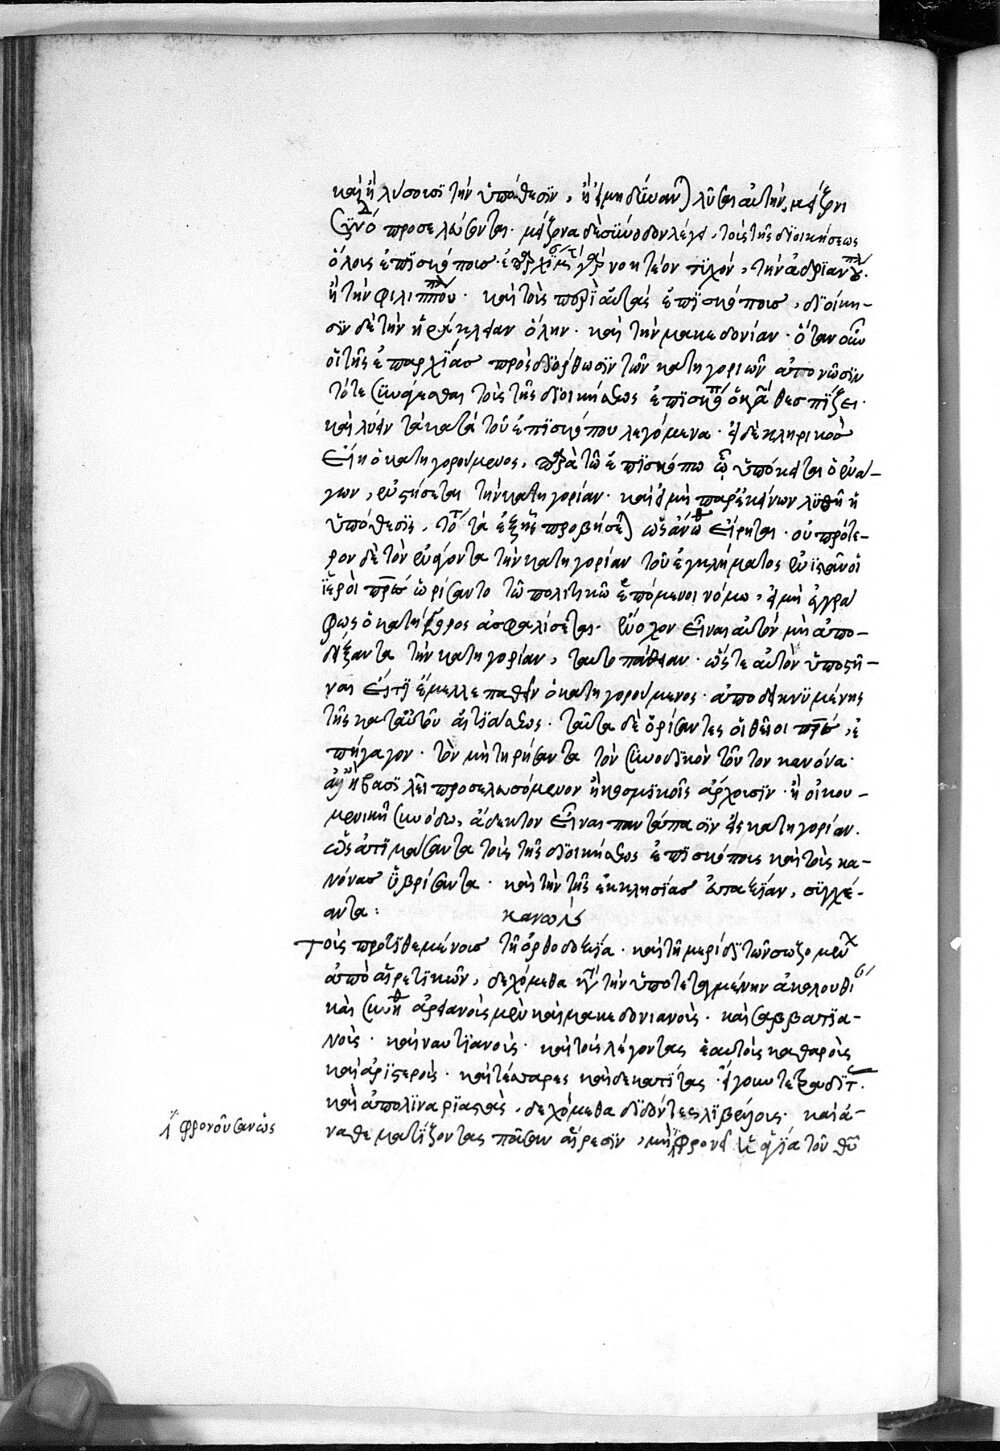 καὶ ἢ λύσουσι τὴν ὑπόθεσιν, ἢ εἰ μὴ δύναν) λῦσαι αὐτήν, μείζονι
συνόδ προσελεύσονται· μείζονα δὲ σύνοδον λέγει, τοὺς τῆς διοικήσεως
ὅλους ἐπισκόπους· ἐπαρχίας γὰρ νοητέον τυχόν, τὴν ἀδριανουπλ·
ἢ τὴν φιλιππουπλ· καὶ τοὺς περὶ αὐτὰς ἐπισκόπους, διοίκη-
σιν δὲ τὴν θράκην ὅλην· καὶ τὴν μακεδονίαν· ὅταν οὖν
οἱ τῆς ἐπαρχίας πρὸς διόρθωσιν τῶν κατηγοριῶν ἀπονῶσιν
τότε συνάγεσθαι τοὺς τῆς διοικήσεως ἐπισκόπ ὁ κα θεσπίζει·
καὶ λύειν τὰ κατὰ τοῦ ἐπισκόπου λεγόμενα· εἰ δὲ κληρικὸσ
εἴη ὁ κατηγορούμενος, παρὰ τῶ ἐπισκόπω ᾧ ὑπόκειται ὁ ἐνά-
γων, ἐνστήσεται τὴν κατηγορίαν· καὶ εἰ μὴ παρ' ἐκείνων λυθῆ ἡ
ὑπόθεσις, τότ τὰ ἑξῆς προβήσε) ὡς ἄνωθ εἴρηται· οὐ πρότε-
ρον δὲ τὸν ἐνάγοντα τὴν κατηγορίαν τοῦ ἐγκλήματος ἐνιστᾶν οἱ
ἱεροὶ πρσ ὡρίσαντο τῶ πολιτικῶ ἑπόμενοι νόμω, εἰ μὴ ἐγγρά
φως ὁ κατήγορος ἀσφαλίσεται· ἔνοχον εἶναι αὐτὸν μὴ ἀπο-
δείξαντα τὴν κατηγορίαν, ταυτοπάθειαν· ὥστε αὐτὸν ὑποστῆ-
ναι εἴ τι ἔμελλε παθεῖν ὁ κατηγορούμενος· ἀποδεικνυμένης
τῆς κατ' αὐτοῦ αἰτιάσεως· ταῦτα δὲ ὁρίσαντες οἱ θεῖοι πρσ, ἐ
πήγαγον· τὸν μὴ τηρήσαντα τὸν συνοδικὸν τοῦτον κανόνα·
ἀλλ' ἢ βασιλεῖ προσελευσόμενον ἢ κοσμικοῖς ἄρχουσιν· ἢ οἰκου-
μενικῆ συνόδω, ἄδεκτον εἶναι παντάπασιν εἰς κατηγορίαν·
ὡς ἀτιμάσαντα τοὺς τῆς διοικήσεως ἐπισκόπους καὶ τοὺς κα-
νόνας ὑβρίσαντα· καὶ τὴν τῆς ἐκκλησίας εὐταξίαν, συγχέ-
αντα:
κανων
Τοὺς προστιθεμένους τῆ ὀρθοδοξία· καὶ τῆ μερίδι τῶν σωζομέν
ἀπὸ αἱρετικῶν, δεχόμεθα κατ τὴν ὑποτεταγμένην ἀκολουθί
καὶ συνήθ ἀρειανοὺς μὲν καὶ μακεδονιανοὺς· καὶ σαββατια-
νοὺς· καὶ ναυτιανοὺς· καὶ τοὺς λέγοντας ἑαυτοὺς καθαροὺς
καὶ ἀριστεροὺς· καὶ τέσσαρες καὶ δεκατίτας· εἴγουν τετραδίτ·
καὶ ἀπολιναριαστάς, δεχόμεθα διδόντες λιβέλλους· καὶ ἀ-
ναθεματίζοντας πᾶσαν αἵρεσιν, μὴ φρον ἡ ἁγία τοῦ θῦ
φρονοῦσαν ὡς